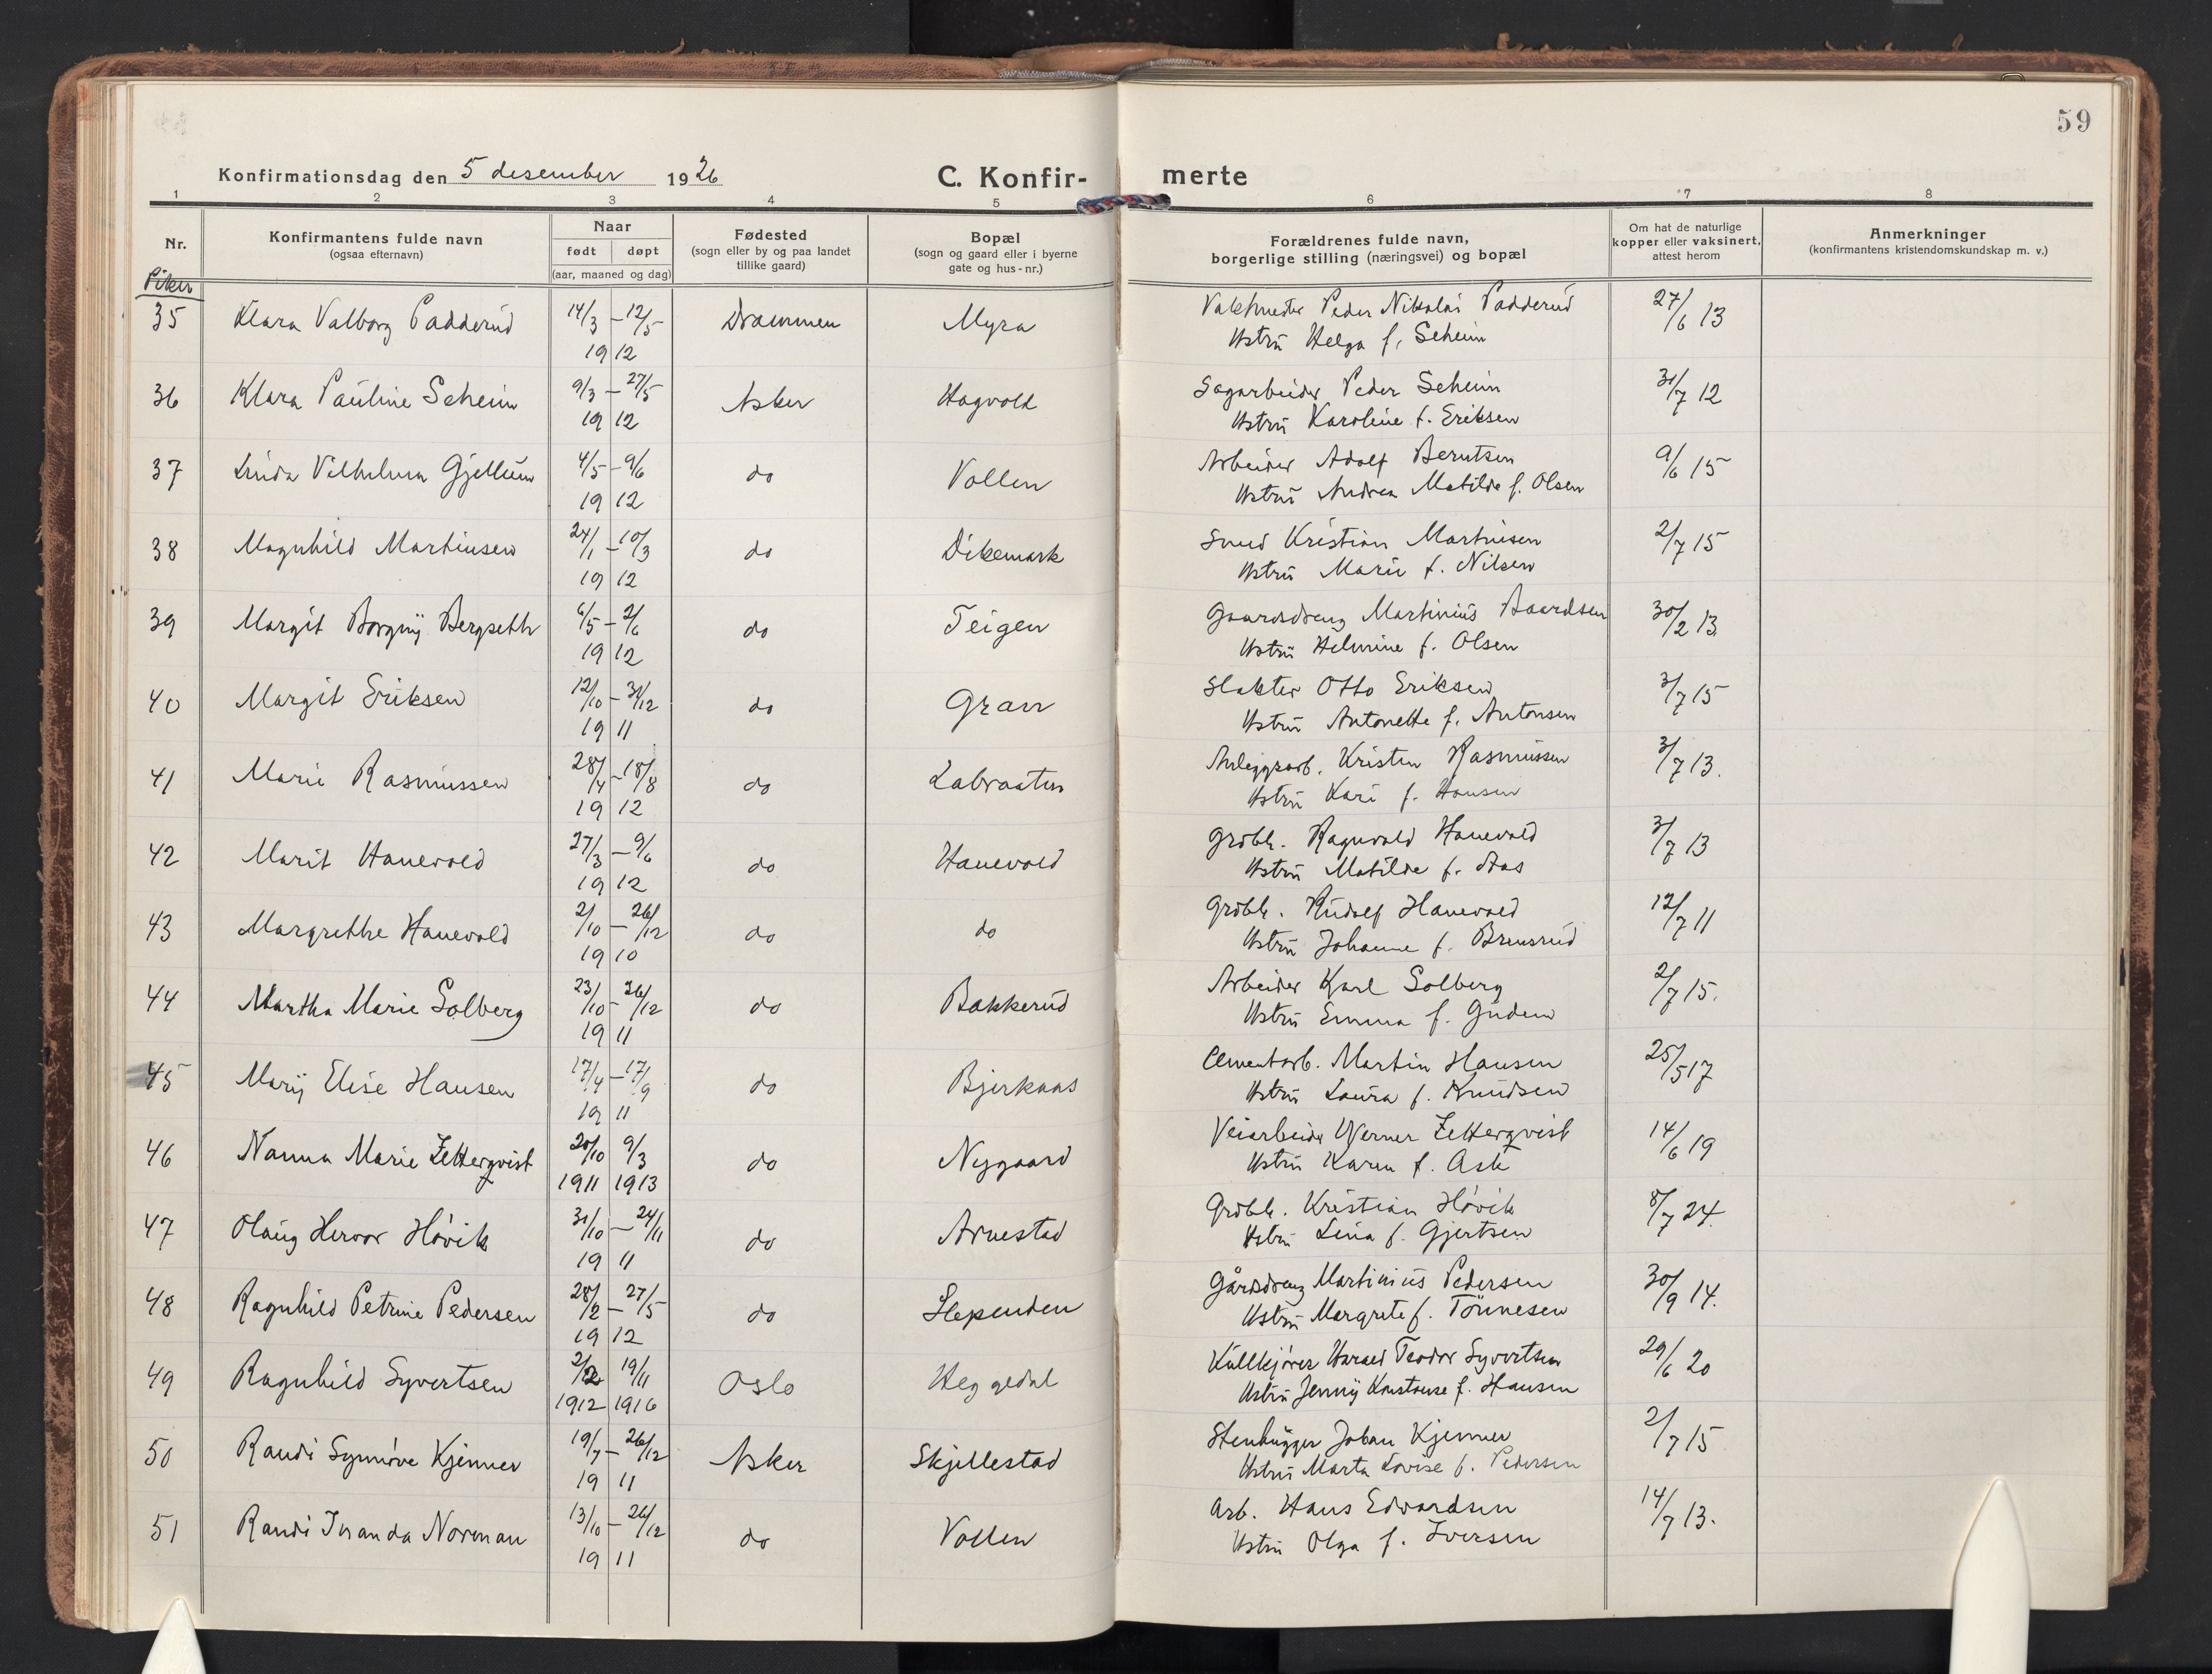 59
Konfirmationsdag den 5 desember 1926
C. Konfir-merte
1 2 3 4 5 6 7 8
Nr.
Konfirmantens fulde navn
(ogsaa efternavn)
Naar
født døpt
(aar, maaned og dag)
Fødested
(sogn eller by og paa landet
tillike gaard)
Bopæl
(sogn og gaard eller i byerne
gate og hus-nr.)
Forældrenes fulde navn,
borgerlige stilling (næringsvei) og bopæl
Om hat de naturlige
kopper eller vaksinert,
attest herom
Anmerkninger
(konfirmantens kristendomskundskap m. v.)
Piker
35 Klara Valborg Padderud 14/3 – 12/5 Drammen Myra Vaktmester Peder Nikolai Padderud 27/6 13
19 12 Hstru Helga f. Seheim
36 Klara Pauline Seheim 9/3 – 27/5 Asker Hagvold Sagarbeider Peder Seheim 31/7 12
19 12 Hstru Karoline f. Eriksen
37 Linda Vilhelma Gjellum 4/5 – 9/6 do Vollen Arbeider Adolf Berntsen 9/6 15
19 12 Hstru Andrea Matilde f. Olsen
38 Magnhild Martinsen 24/1 – 10/3 do Dikemark Smed Kristian Martinsen 2/7 15
19 12 Hstru Marie f. Nilsen
39 Margit Borgny Bergseth 6/5 – 2/6 do Teigen Gaardsdreng Martinius Baardsen 30/2 13
19 12 Hstru Helmine f. Olsen
40 Margit Eriksen 12/10 – 31/12 do Gran Slakter Otto Eriksen 3/7 15
19 11 Hstru Antonette f. Antonsen
41 Marie Rasmussen 28/4 – 18/8 do Labraaten Anleggsarb. Kristen Rasmussen 3/7 13.
19 12 Hstru Kari f. Hansen
42 Marit Hanevold 27/3 – 9/6 do Hanevold Grdbr. Ragnvald Hanevold 3/7 13
19 12 Hstru Matilde f. Aas
43 Margrethe Hanevold 2/10 – 26/12 do do Grdbr. Rudolf Hanevold 12/7 11
19 10 Hstru Johanne f. Brensrud
44 Martha Marie Solberg 23/10 – 26/12 do Bakkerud Arbeider Karl Solberg 2/7 15.
19 11 Hstru Emma f. Gudem
45 Mary Elise Hansen 17/4 – 17/9 do Bjerkaas Cementarb. Martin Hansen 25/5 17
19 11 Hstru Laura f. Knudsen
46 Nanna Marie Zetterqvist 20/10 9/3 do Nygaard Veiarbeider Werner Zetterqvist 14/6 19
1911 1913 Hstru Karen f. Ask
47 Olaug Hervor Høvik 31/10 – 24/11 do Arnestad Grdbr. Kristian Høvik 8/7 24.
19 11 Hstru Lina f. Gjertsen
48 Ragnhild Petrine Pedersen 28/2 – 27/5 do Slependen Gårdsdreng Martinius Pedersen 30/9 14.
19 12 Hstru Margrete f. Tönnesen
49 Ragnhild Syvertsen 2/2 19/11 Oslo Heggedal Kullkjører Harald Teodor Syvertsen 29/6 20
1912 1916 Hstru Jenny Konstanse f. Hansen
50 Randi Synnöve Kjenner 19/7 – 26/12 Asker Skjellestad Stenhugger Johan Kjenner 2/7 15
19 11 Hstru Marta Lovise f. Pedersen
51 Randi Iranda Norman 13/10 – 26/12 do Vollen Arb. Hans Edvardsen 14/7 13.
19 11 Hstru Olga f. Iversen